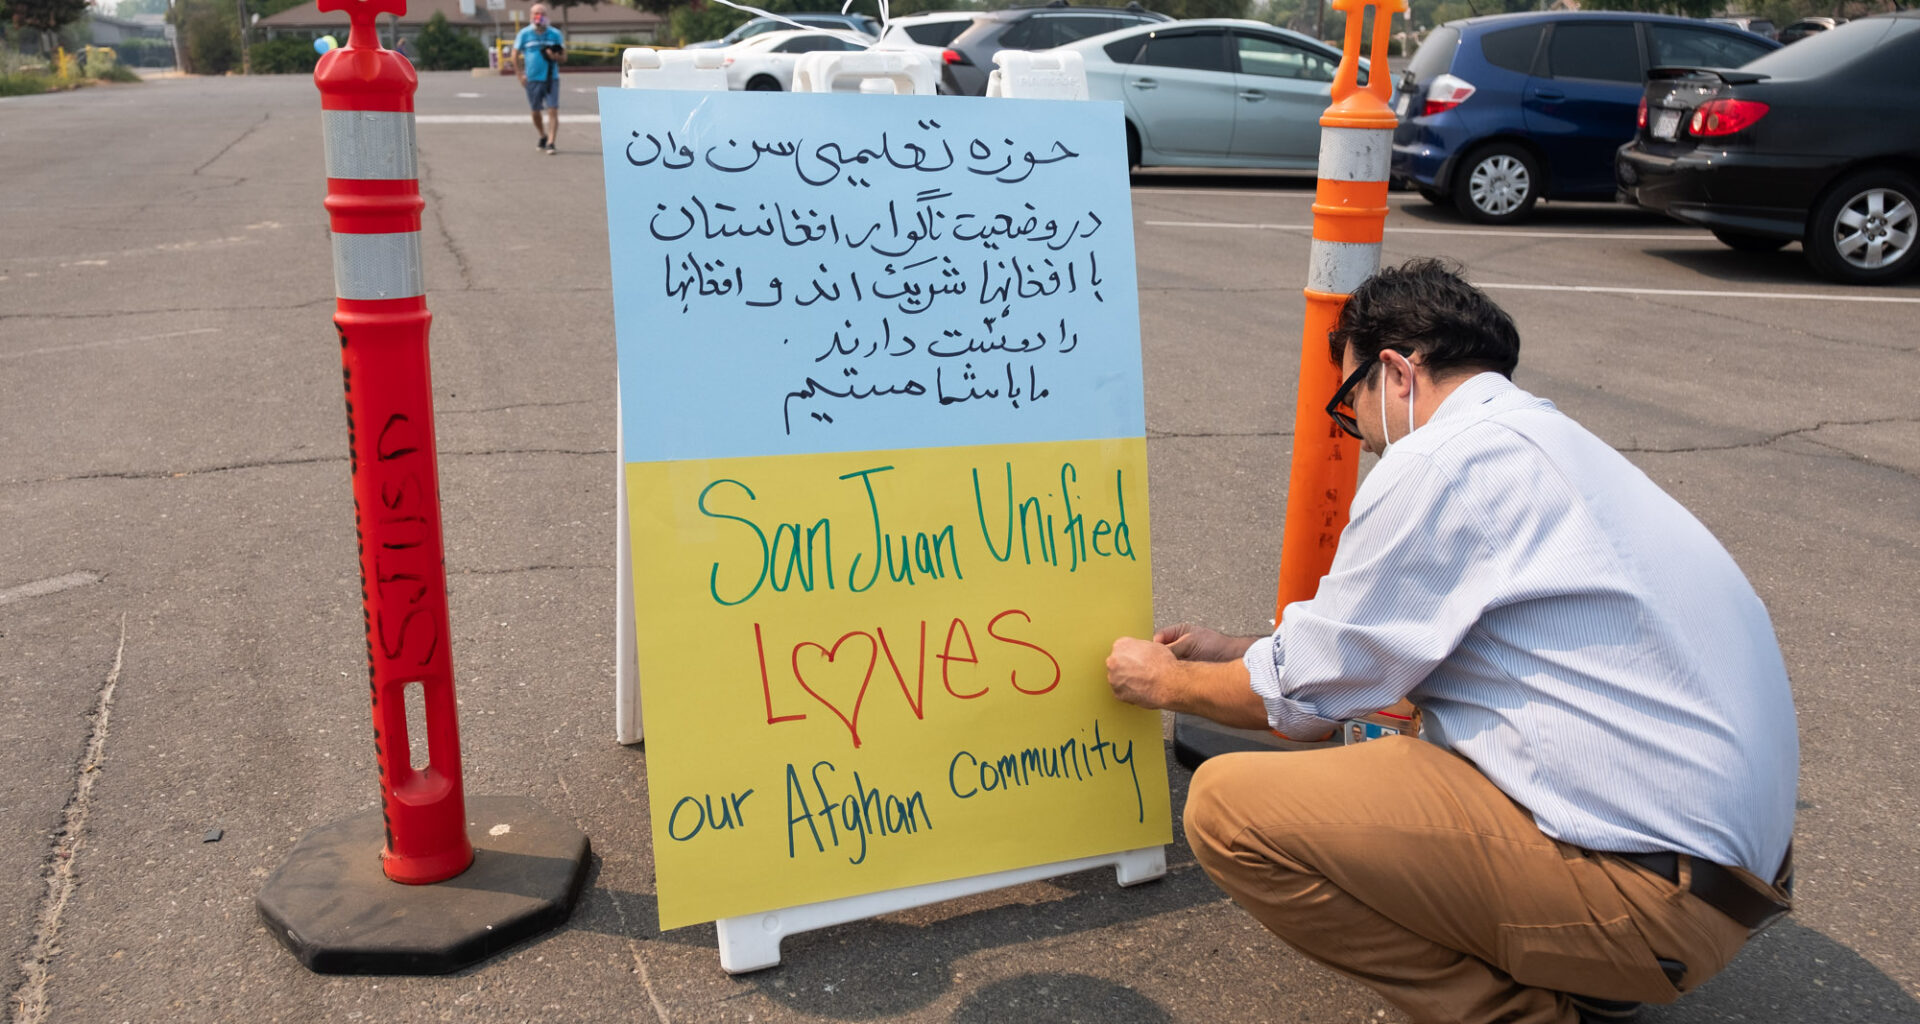 حوزه تعلیمی سن وان
در وضعیت ناگوار افغانستان
با افغانها شریک اند و افغانها
را دوست دارند .
ما با شما هستیم
San Juan Unified
LOVES
our Afghan Community
SJUSD